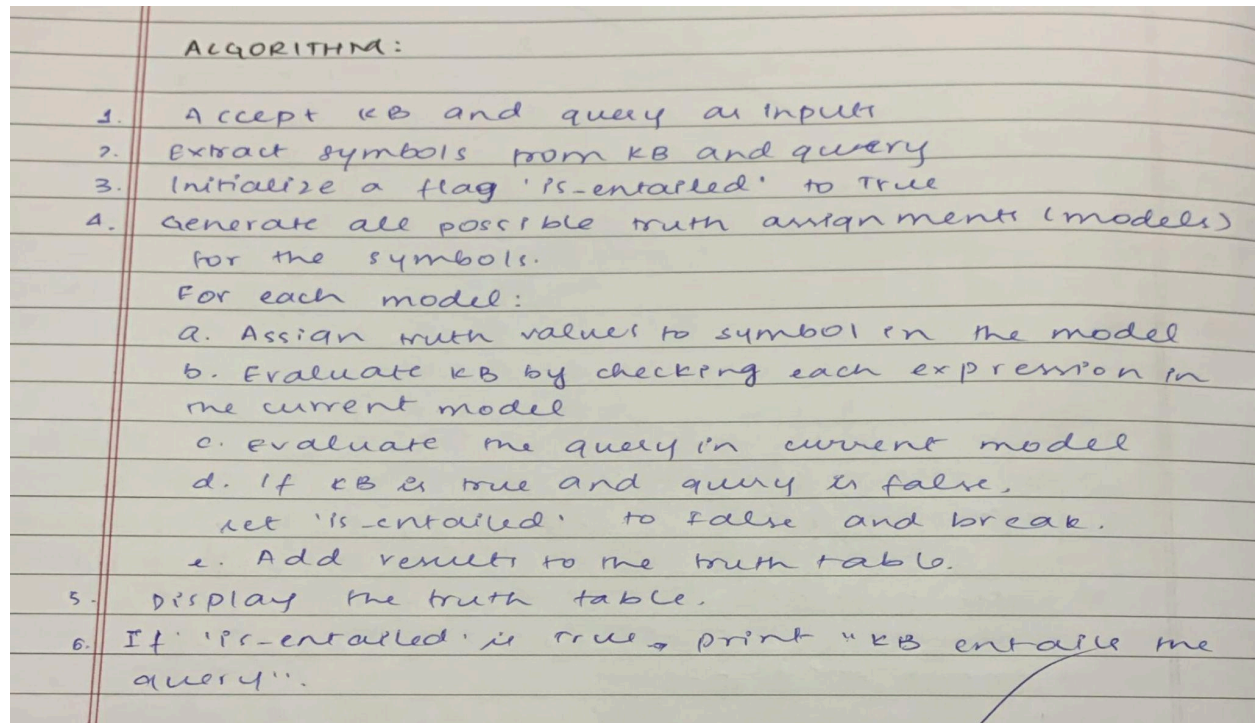 ALGORITHM:
1. Accept KB and query as inputs
2. Extract symbols from KB and query
3. Initialize a flag 'is-entailed' to True
4. Generate all possible truth assignments (models)
for the symbols.
For each model:
a. Assign truth values to symbol in the model
b. Evaluate KB by checking each expression in
the current model
c. Evaluate the query in current model
d. If KB is true and query is false,
set 'is-entailed' to False and break.
e. Add results to the truth table.
5. Display the truth table.
6. If 'is-entailed' is True, print "KB entails the
query".